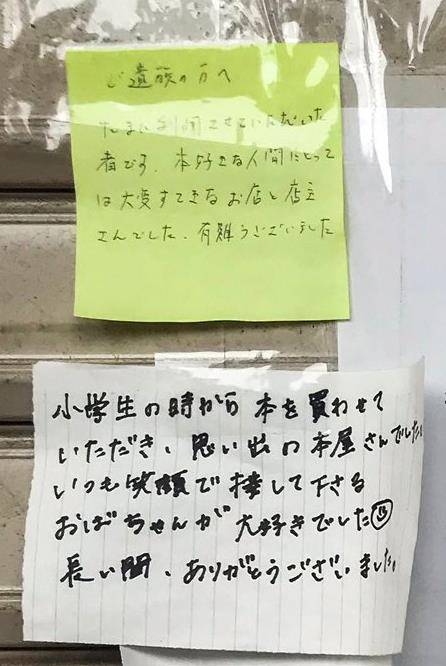 ご遺族の方へ
たまに利用させていただいた
者です。本好きな人間にとって
は大変すてきなお店と店主
さんでした。有難うございました
小学生の時から本を買わせて
いただき、思い出の本屋さんでした。
いつも笑顔で接して下さる
おばちゃんが大好きでした
長い間、ありがとうございました。